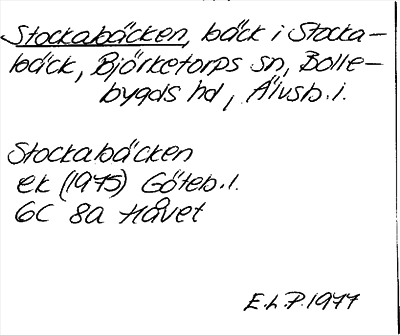 Stockabäcken, bäck i Stocka-
bäck, Björketorps sn, Bolle-
bygds hd, Älvsb.l.
Stockabäcken
ek (1975) Göteb.l.
6C 8a Håvet
E.L.P. 1977